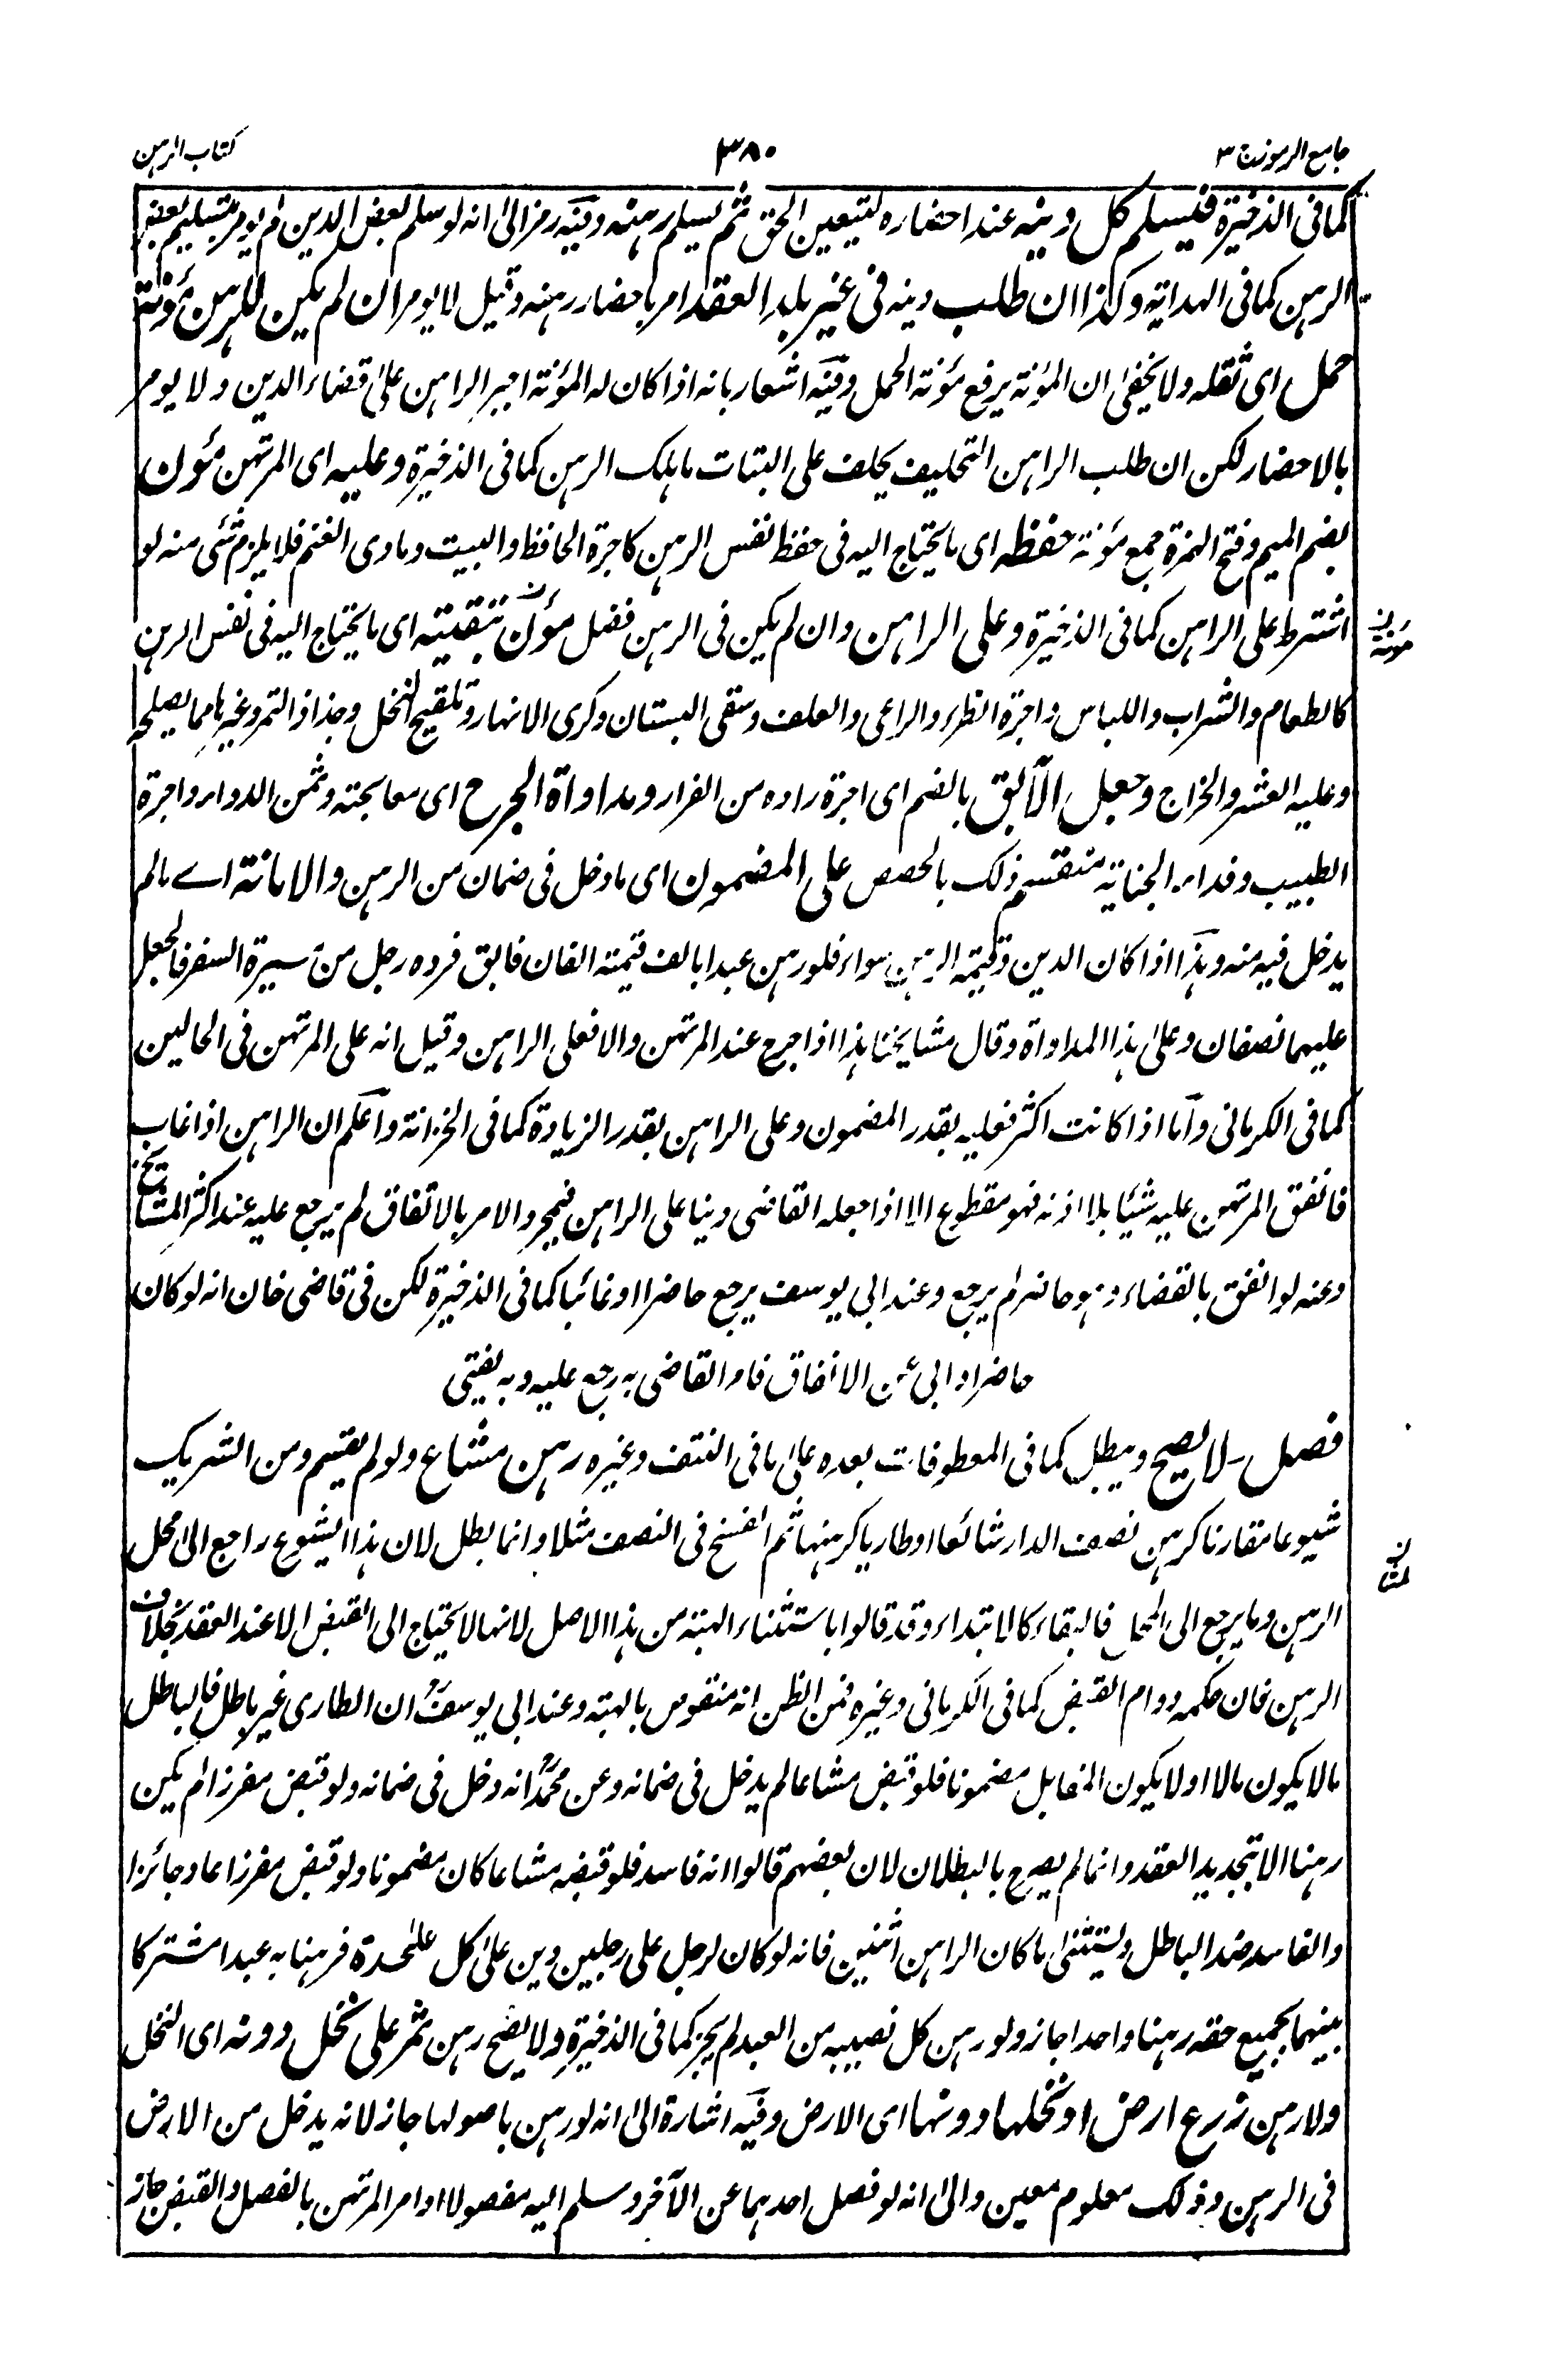 جامع الرموز ج ٣
٣٨٠
كتاب الرهن
كما فى الذخيرة فيسلم كل دينه عند احضاره ليتعين الحق ثم يسلم رهنه وفيه رمز الى انه لو سلم بعض الدين لم يومر بتسليم بعض
الرهن كما فى الهداية وكذا ان طلب دينه فى غير بلد العقد امر باحضار رهنه وقيل لا يومر ان لم يكن للرهن مؤنة
حمل اى ثقله ولا يخفى ان المؤنة يرفع مؤنة الحمل وفيه اشعار بانه اذا كان له المؤنة اجبر الراهن على قضاء الدين ولا يومر
بالاحضار لكن ان طلب الراهن التحليف يحلف على البتات ما هلك الرهن كما فى الذخيرة وعليه اى المرتهن مؤن
بضم الميم وفتح الهمزة جمع مؤنة حفظه اى ما يحتاج اليه فى حفظ نفس الرهن كاجرة الحافظ والبيت وماوى الغنم فلا يلزم شئ منه لو
اشترط على الراهن كما فى الذخيرة وعلى الراهن وان لم يكن فى الرهن فضل مؤن تبقيته اى ما يحتاج اليه فى نفس الرهن
كالطعام والشراب واللباس واجرة الظئر والراعى والعلف وسقى البستان وكرى الانهار وتلقيح النخل وجذاذ التمر وغيرها مما يصلحه
وعليه العشر والخراج وجعل الآبق بالضم اى اجرة راده من الفرار ومداواة الجرح اى معالجته وثمن الدواء واجرة
الطبيب وفداء الجناية منقسم ذلك بالحصص على المضمون اى ما دخل فى ضمان من الرهن والامانة اے ما لم
يدخل فيه منه وهذا اذا كان الدين وقيمة الرهن سواء فلو رهن عبدا بالف قيمته الفان فابق فرده رجل من مسيرة السفر فالجعل
عليهما نصفان وعلى هذا المداواة وقال مشايخنا هذا اذا جرح عند المرتهن والا فعلى الراهن وقيل انه على المرتهن فى الحالين
كما فى الكرمانى واما اذا كانت اكثر فعليه بقدر المضمون وعلى الراهن بقدر الزيادة كما فى الخزانة واعلم ان الراهن اذا غاب
فانفق المرتهن عليه شيئا بلا اذنه فهو مقطوع الا اذا جعله القاضى دينا على الراهن فبمجرد الامر بالاتفاق لم يرجع عليه عند اكثر المشايخ
وعنه لو انفق بالقضاء وهو حاضر لم يرجع وعند ابى يوسف يرجع حاضرا او غائبا كما فى الذخيرة لكن فى قاضى خان انه لو كان
حاضرا وابى عن الانفاق فامر القاضى به رجع عليه وبه يفتى
فصل لا يصح ويبطل كما فى المعطوفات بعده على ما فى النتف وغيره رهن مشاع ولو لم يقسم ومن الشريك
شيوعا مقارنا كرهن نصف الدار شائعا او طاريا كرهنها ثم الفسخ فى النصف مثلا وانما بطل لان هذا الشيوع راجع الى محل
الرهن وما يرجع الى المحل فالبقاء كالابتداء وقد قالوا باستثناء الهبة من هذا الاصل لانها لا يحتاج الى القبض الا عند العقد بخلاف
الرهن فان حكمه دوام القبض كما فى الكرمانى وغيره فمن الظن انه منقوص بالهبة وعند ابى يوسف ان الطارى غير باطل فالباطل
ما لا يكون مالا او لا يكون المقابل مضمونا فلو قبض مشاعا لم يدخل فى ضمانه وعن محمد انه دخل فى ضمانه ولو قبض مفرزا لم يكن
رهنا الا بتجديد العقد وانما لم يصرح بالبطلان لان بعضهم قالوا انه فاسد فلو قبضه مشاعا كان مضمونا ولو قبض مفرزا عاد جائزا
والفاسد ضد الباطل ويستثنى ما كان الراهن اثنين فانه لو كان لرجل على رجلين دين على كل علىحدة فرهنا به عبدا مشتركا
بينهما بجميع حقه رهنا واحدا جاز ولو رهن كل نصيبه من العبد لم يجز كما فى الذخيرة ولا يصح رهن ثمر على نخل دونه اى النخل
ولا رهن زرع ارض او نخلها دونها اى الارض وفيه اشارة الى انه لو رهن باصولها جاز لانه يدخل من الارض
فى الرهن وذلك معلوم معين والى انه لو فصل احدهما عن الآخر وسلم اليه مفصولا او امر المرتهن بالفصل والقبض جاز